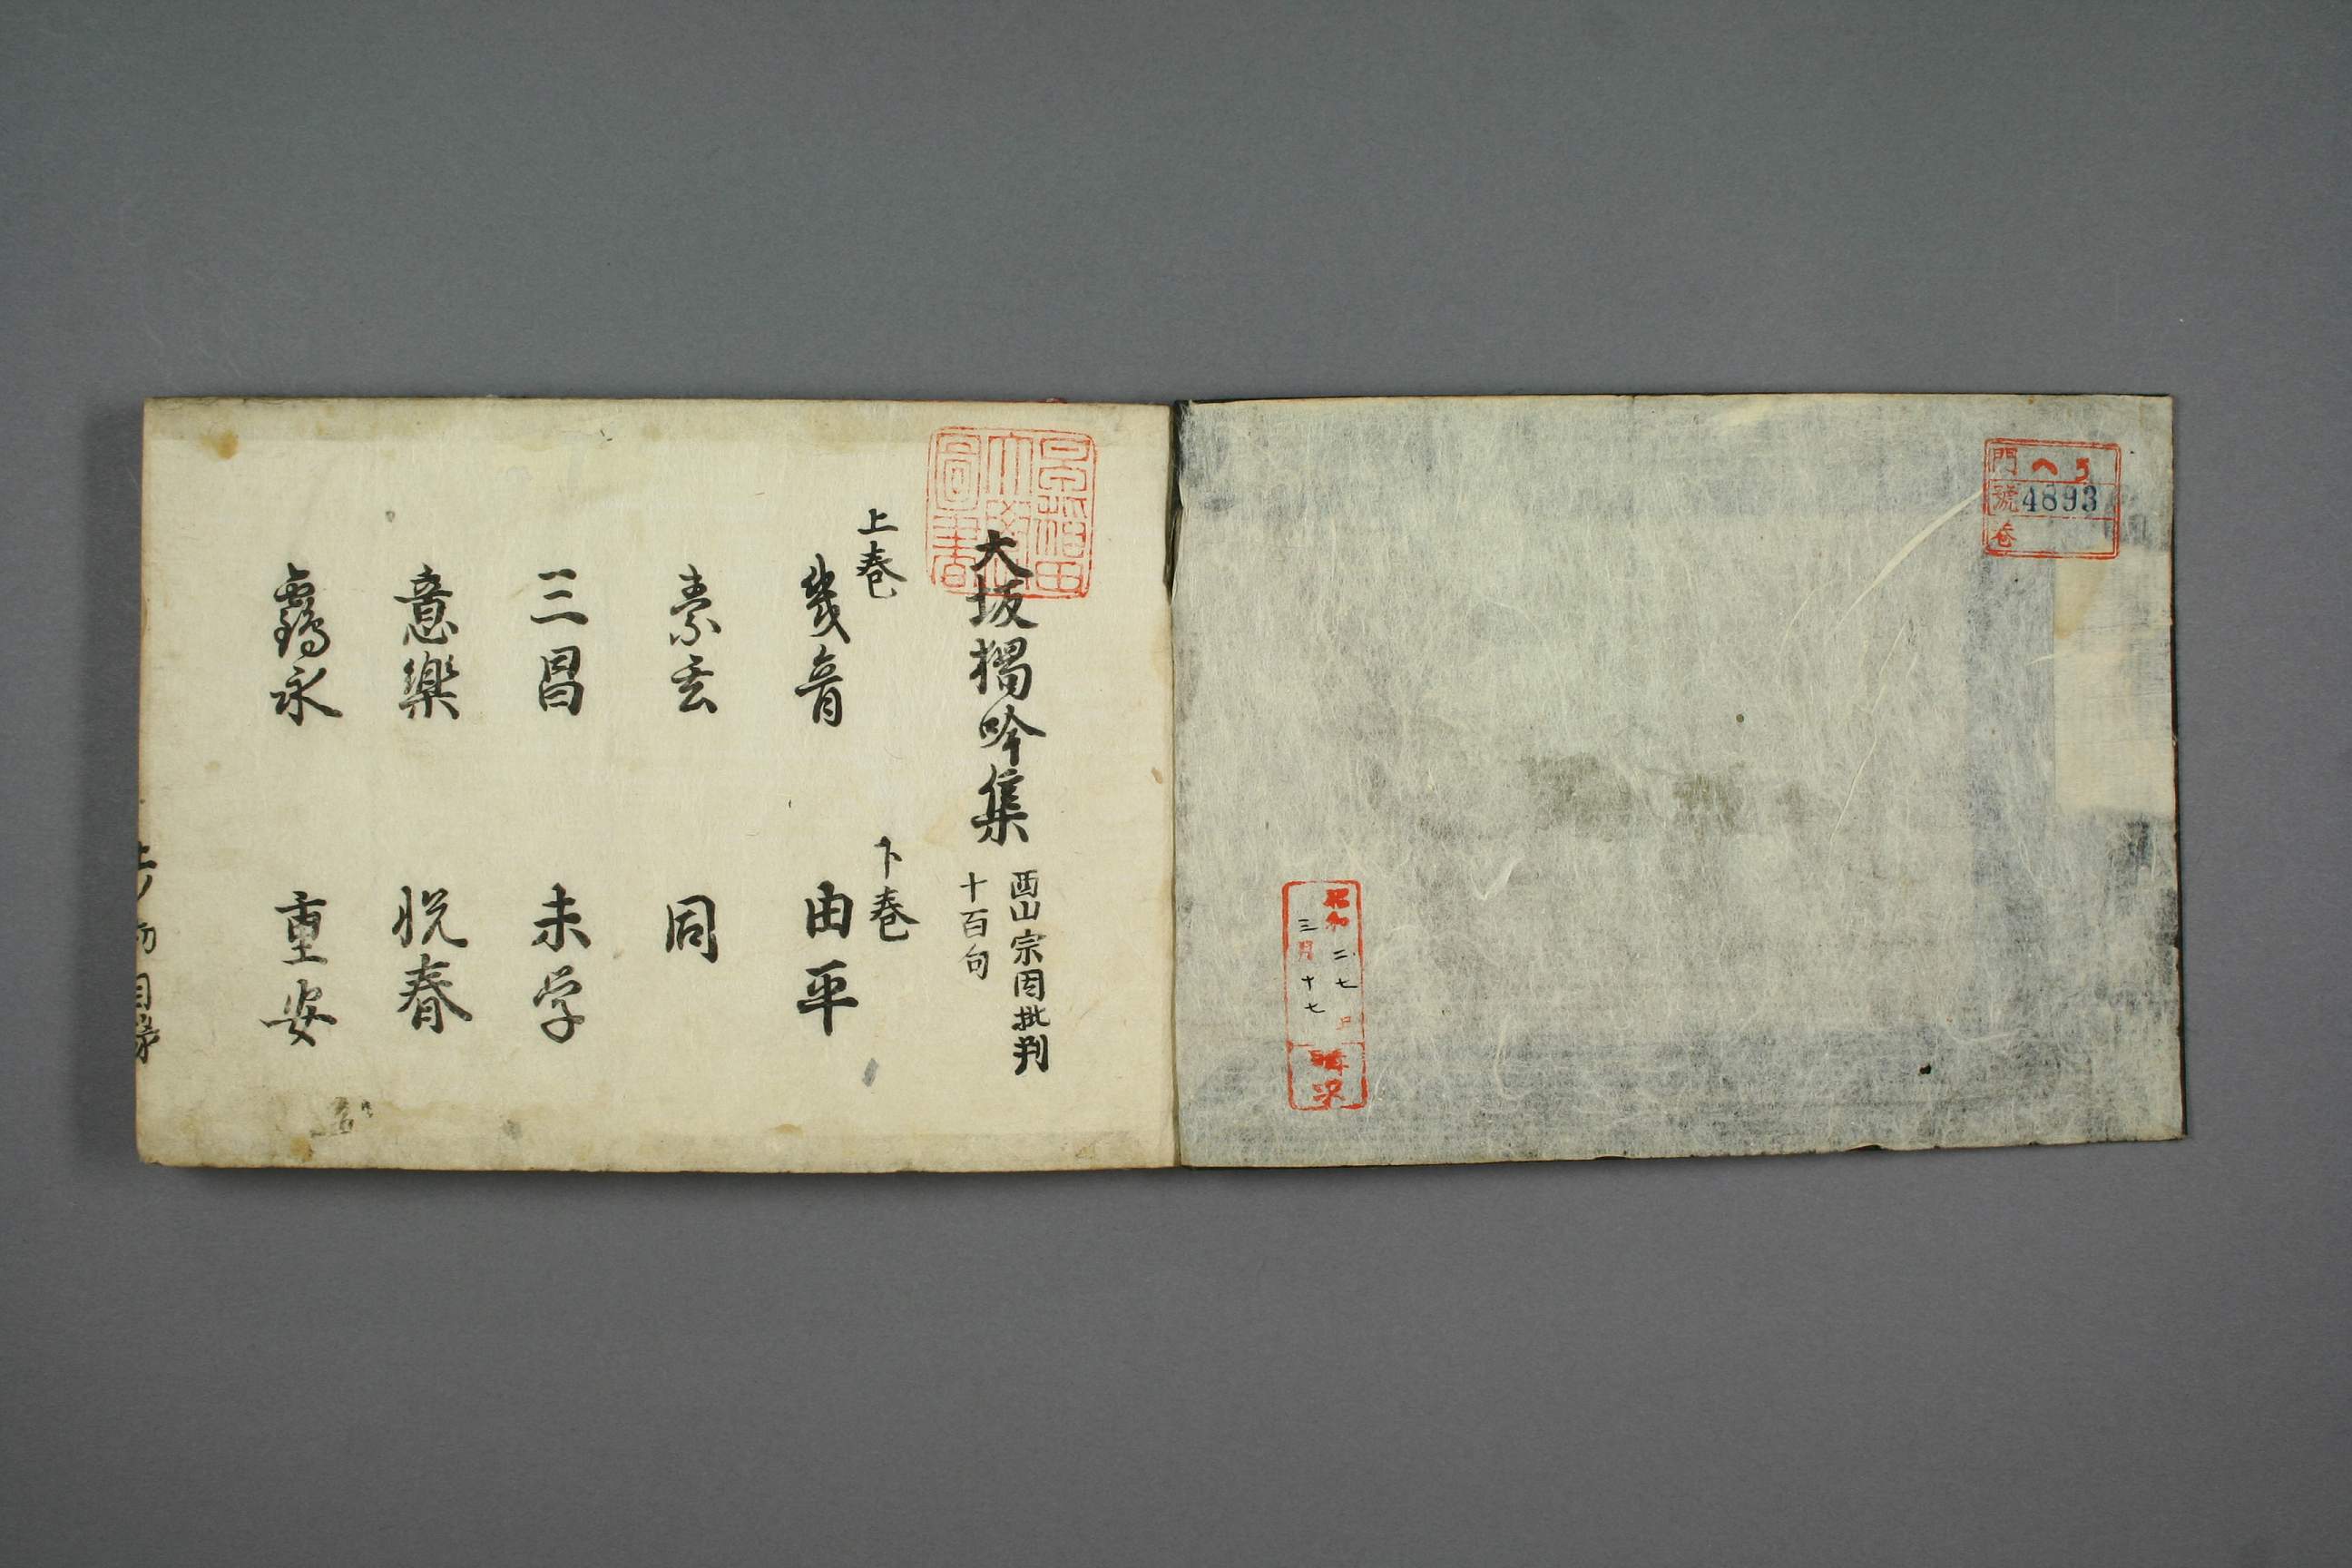 門 ヘ5
號 4893
卷
昭和二七
三月十七
購求
早稲田
大學
圖書
大坂獨吟集
西山宗因批判
十百句
上巻
幾音
素玄
三昌
意樂
鶴永
下巻
由平
同
未学
悦春
重安